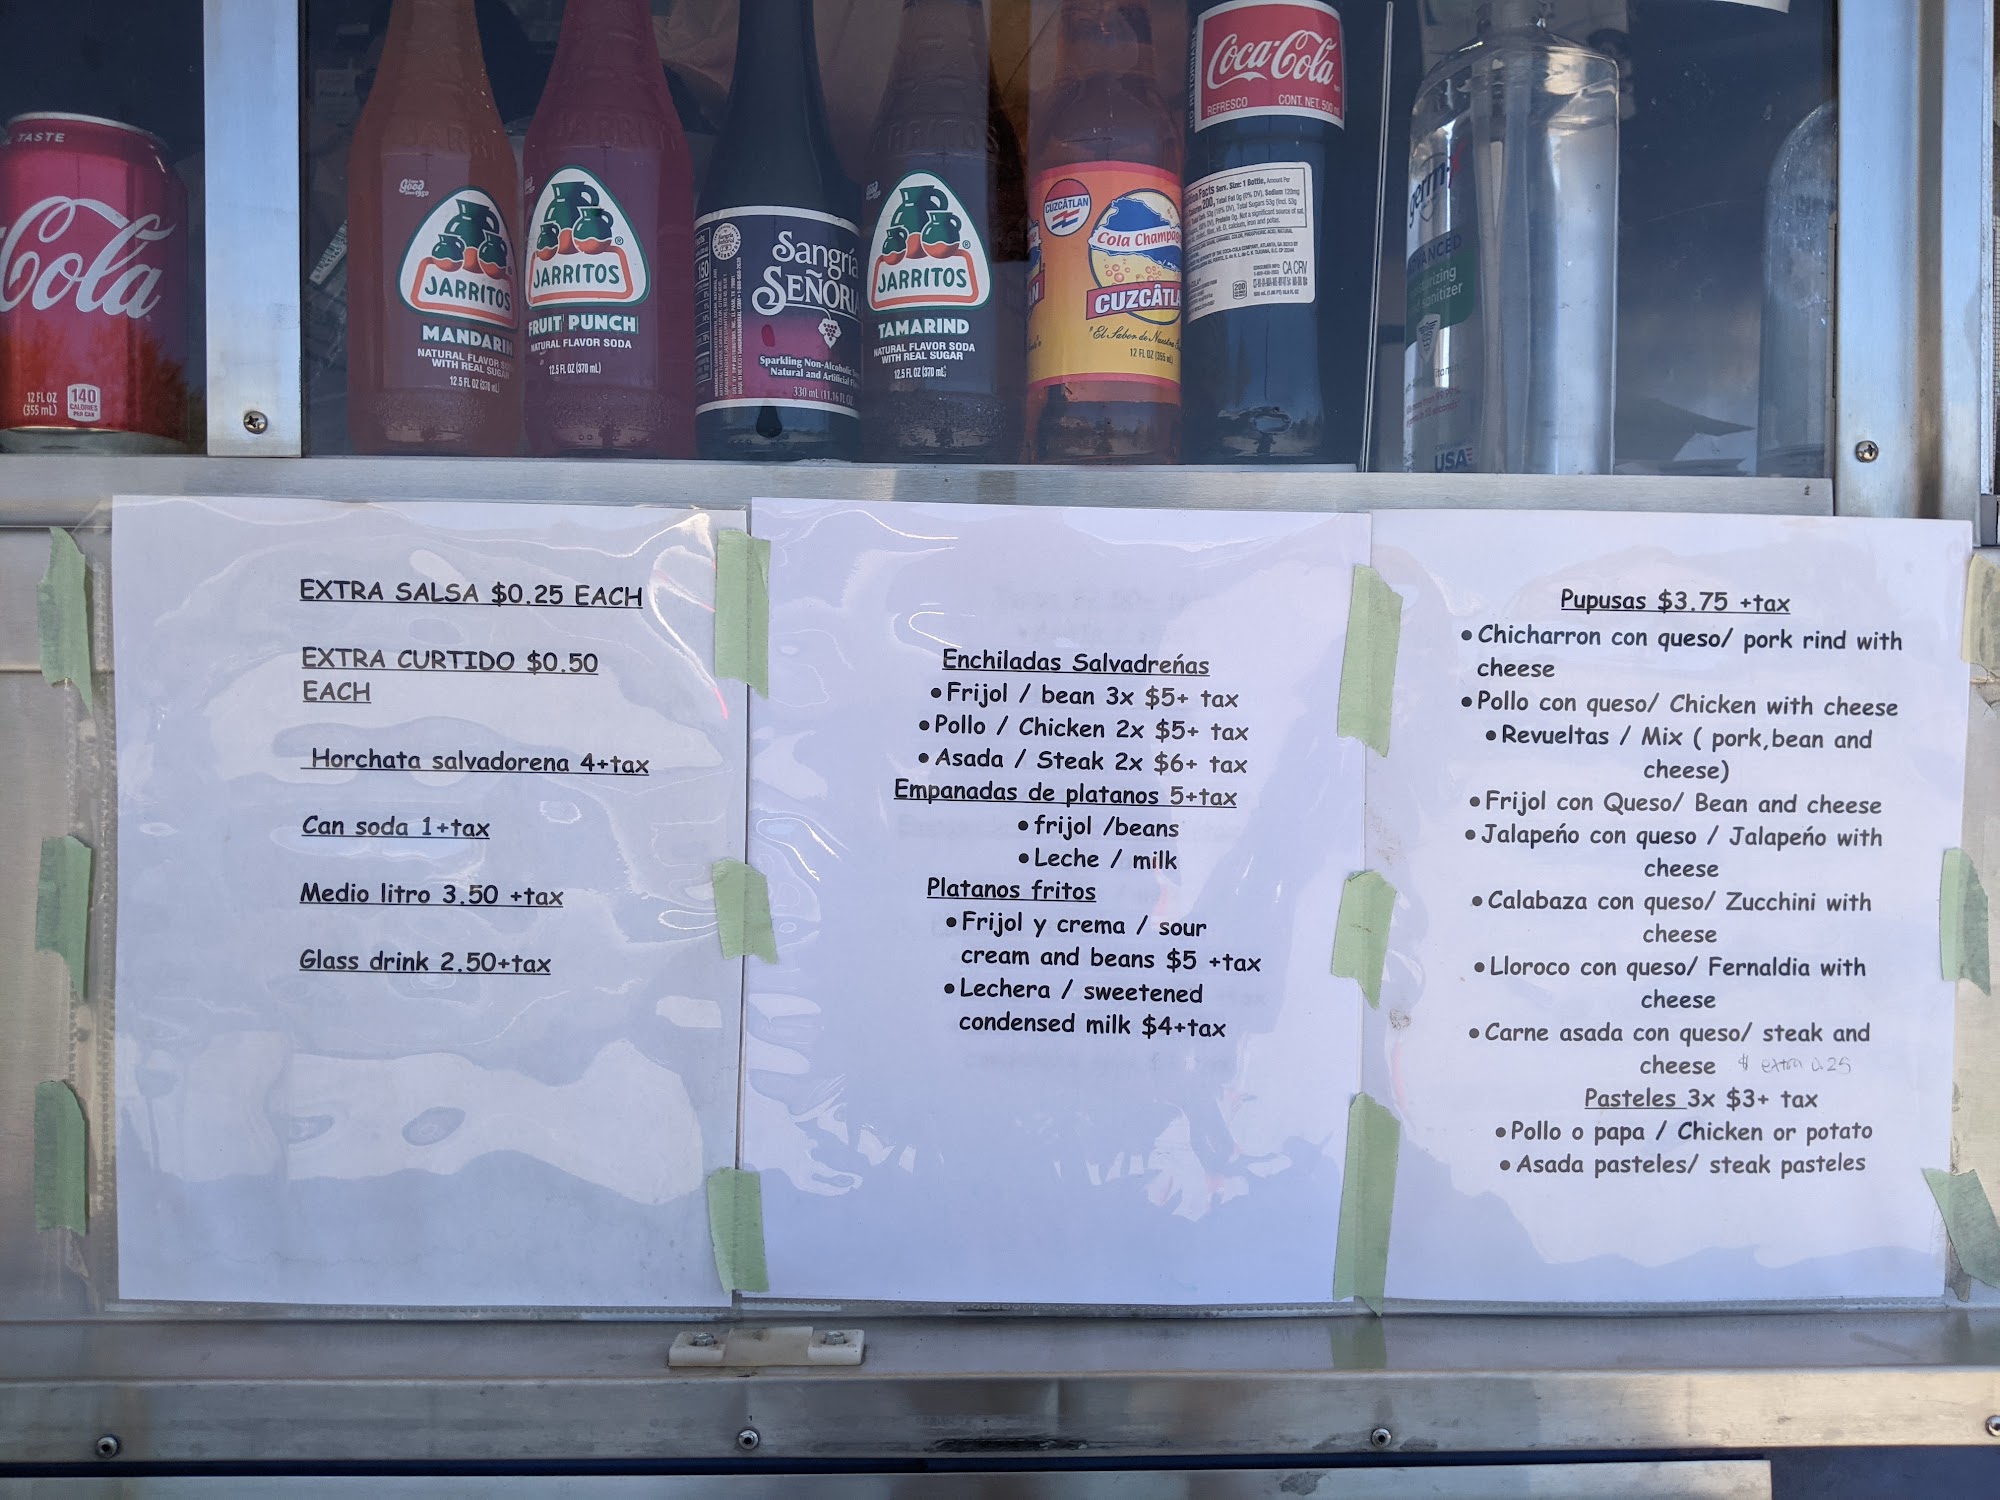 TASTE
Cola
12 FL OZ
(355 mL)
140
CALORIES
PER CAN
Good
JARRITOS
MANDARIN
NATURAL FLAVOR
WITH REAL SUGAR
12.5 FL OZ (370 mL)
JARRITOS
FRUIT PUNCH
NATURAL FLAVOR SODA
12.5 FL OZ (370 mL)
150
Sangría
SEÑORIA
Sparkling Non-Alcoholic
Natural and Artificial
330 mL (11.16 FL OZ
JARRITOS
TAMARIND
NATURAL FLAVOR SODA
WITH REAL SUGAR
12.5 FL OZ (370 mL)
CUZCÂTLAN
Cola Champag
CUZCÂTLA
El Sabor de Nuestra
12 FL OZ (355 mL)
Coca-Cola
REFRESCO CONT. NET. 500 m
CA CRV
200
germ-x
ADVANCED
USA
EXTRA SALSA $0.25 EACH
EXTRA CURTIDO $0.50
EACH
Horchata salvadorena 4+tax
Can soda 1+tax
Medio litro 3.50 +tax
Glass drink 2.50+tax
Enchiladas Salvadreńas
•Frijol / bean 3x $5+ tax
•Pollo / Chicken 2x $5+ tax
•Asada / Steak 2x $6+ tax
Empanadas de platanos 5+tax
•frijol /beans
•Leche / milk
Platanos fritos
•Frijol y crema / sour
cream and beans $5 +tax
•Lechera / sweetened
condensed milk $4+tax
Pupusas $3.75 +tax
•Chicharron con queso/ pork rind with
cheese
•Pollo con queso/ Chicken with cheese
•Revueltas / Mix ( pork,bean and
cheese)
•Frijol con Queso/ Bean and cheese
•Jalapeńo con queso / Jalapeńo with
cheese
•Calabaza con queso/ Zucchini with
cheese
•Lloroco con queso/ Fernaldia with
cheese
•Carne asada con queso/ steak and
cheese $ extra 0.25
Pasteles 3x $3+ tax
•Pollo o papa / Chicken or potato
•Asada pasteles/ steak pasteles